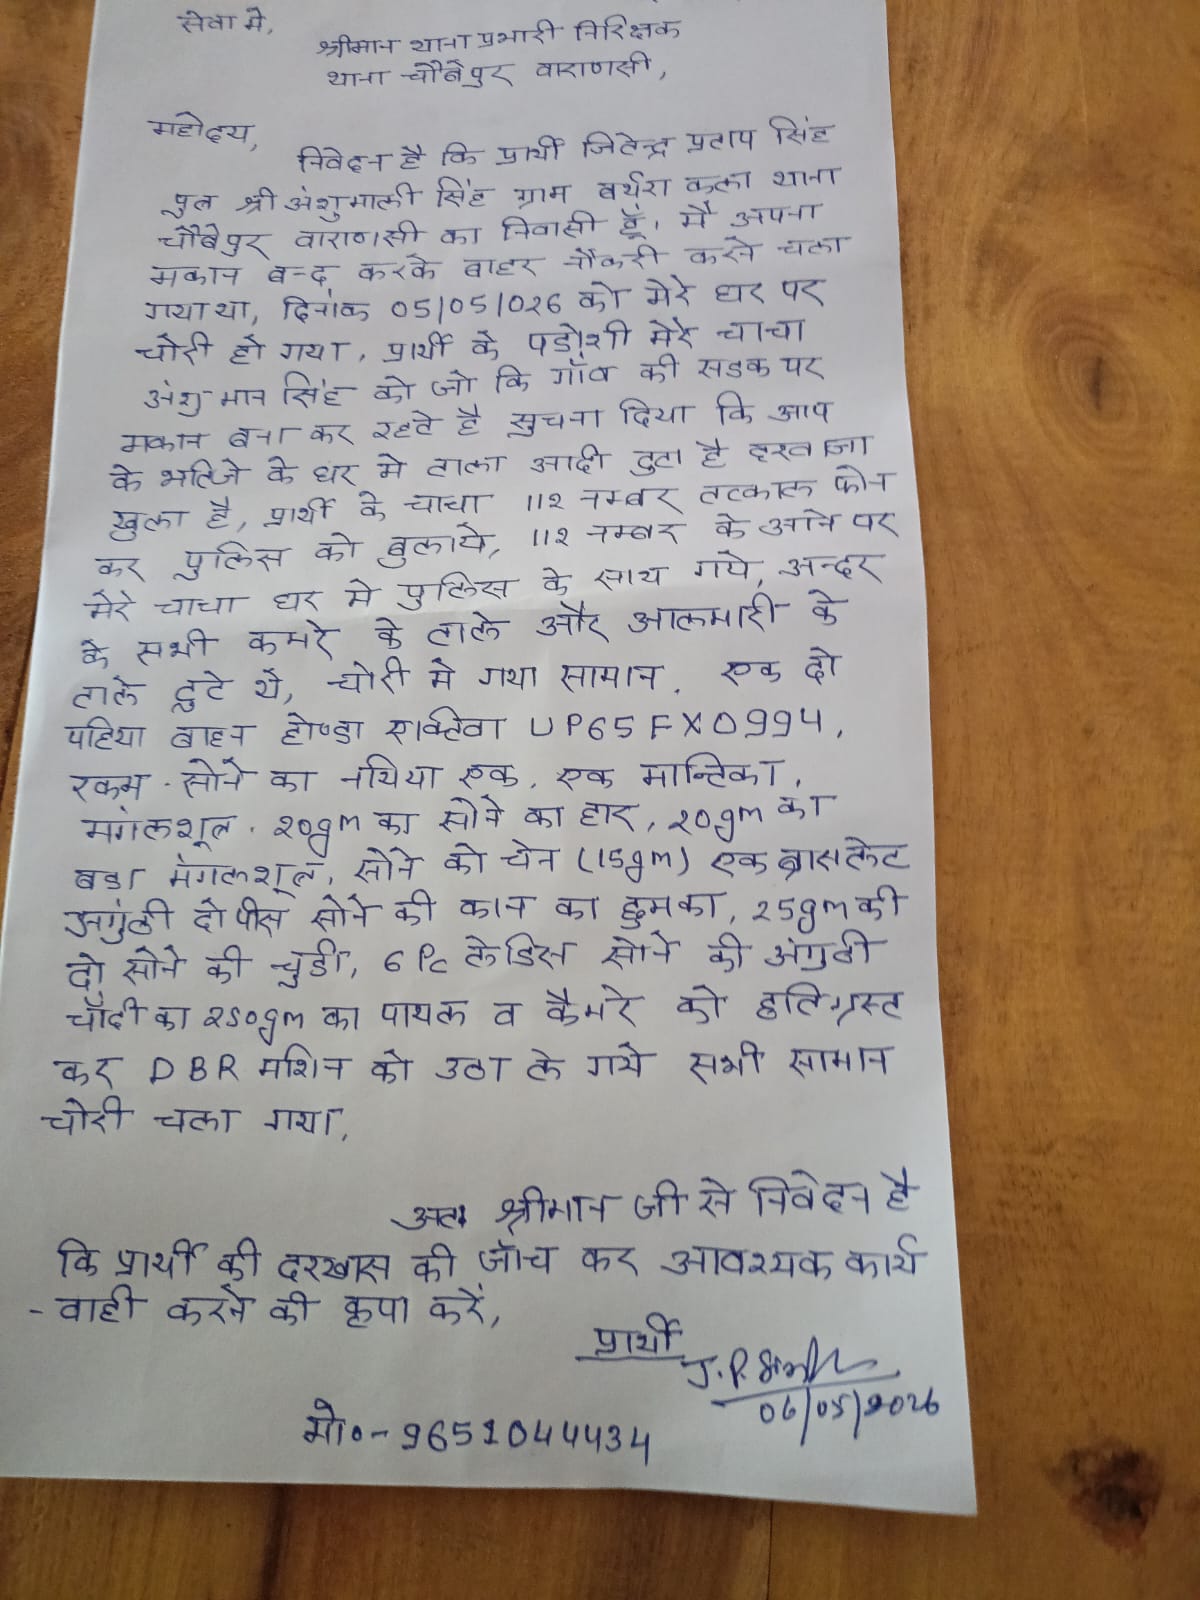 सेवा मे,
श्रीमान थाना प्रभारी निरिक्षक
थाना चौबेपुर वाराणसी,
महोदय,
निवेदन है कि प्रार्थी जितेन्द्र प्रताप सिंह
पुत्र श्री अंशुमाली सिंह ग्राम बर्थरा कला थाना
चौबेपुर वाराणसी का निवासी हूँ, मै अपना
मकान बन्द करके बाहर नौकरी करने चला
गया था, दिनांक 05/05/026 को मेरे घर पर
चोरी हो गया, प्रार्थी के पडोशी मेरे चाचा
अंशुमान सिंह को जो कि गाँव की सडक पर
मकान बना कर रहते है सुचना दिया कि आप
के भतिजे के घर मे ताला आदी टुटा है दरवाजा
खुला है, प्रार्थी के चाचा 112 नम्बर तत्काल फोन
कर पुलिस को बुलाये, 112 नम्बर के आने पर
मेरे चाचा घर मे पुलिस के साथ गये, अन्दर
के सभी कमरे के ताले और आलमारी के
ताले टुटे थे, चोरी मे गया सामान, एक दो
पहिया बाहन होण्डा एक्टिवा UP65FX0994,
रकम - सोने का नथिया एक, एक मान्टिका,
मगंलशूत्र, 20gm का सोने का हार, 20gm का
बडा मंगलशूत्र, सोने की चेन (15gm) एक ब्रासलेट
अगुंठी दो पीस सोने की कान का झुमका, 25gm की
दो सोने की चुडी, 6 Pc लेडिस सोने की अंगुठी
चाँदी का 250gm का पायल व कैमरे को क्षतिग्रस्त
कर DBR मशिन को उठा ले गये सभी सामान
चोरी चला गया,
अतः श्रीमान जी से निवेदन है
कि प्रार्थी की दरखास की जाँच कर आवश्यक कार्य
- वाही करने की कृपा करें,
प्रार्थी
J.P. Singh
06/05/2026
मो०- 9651044434